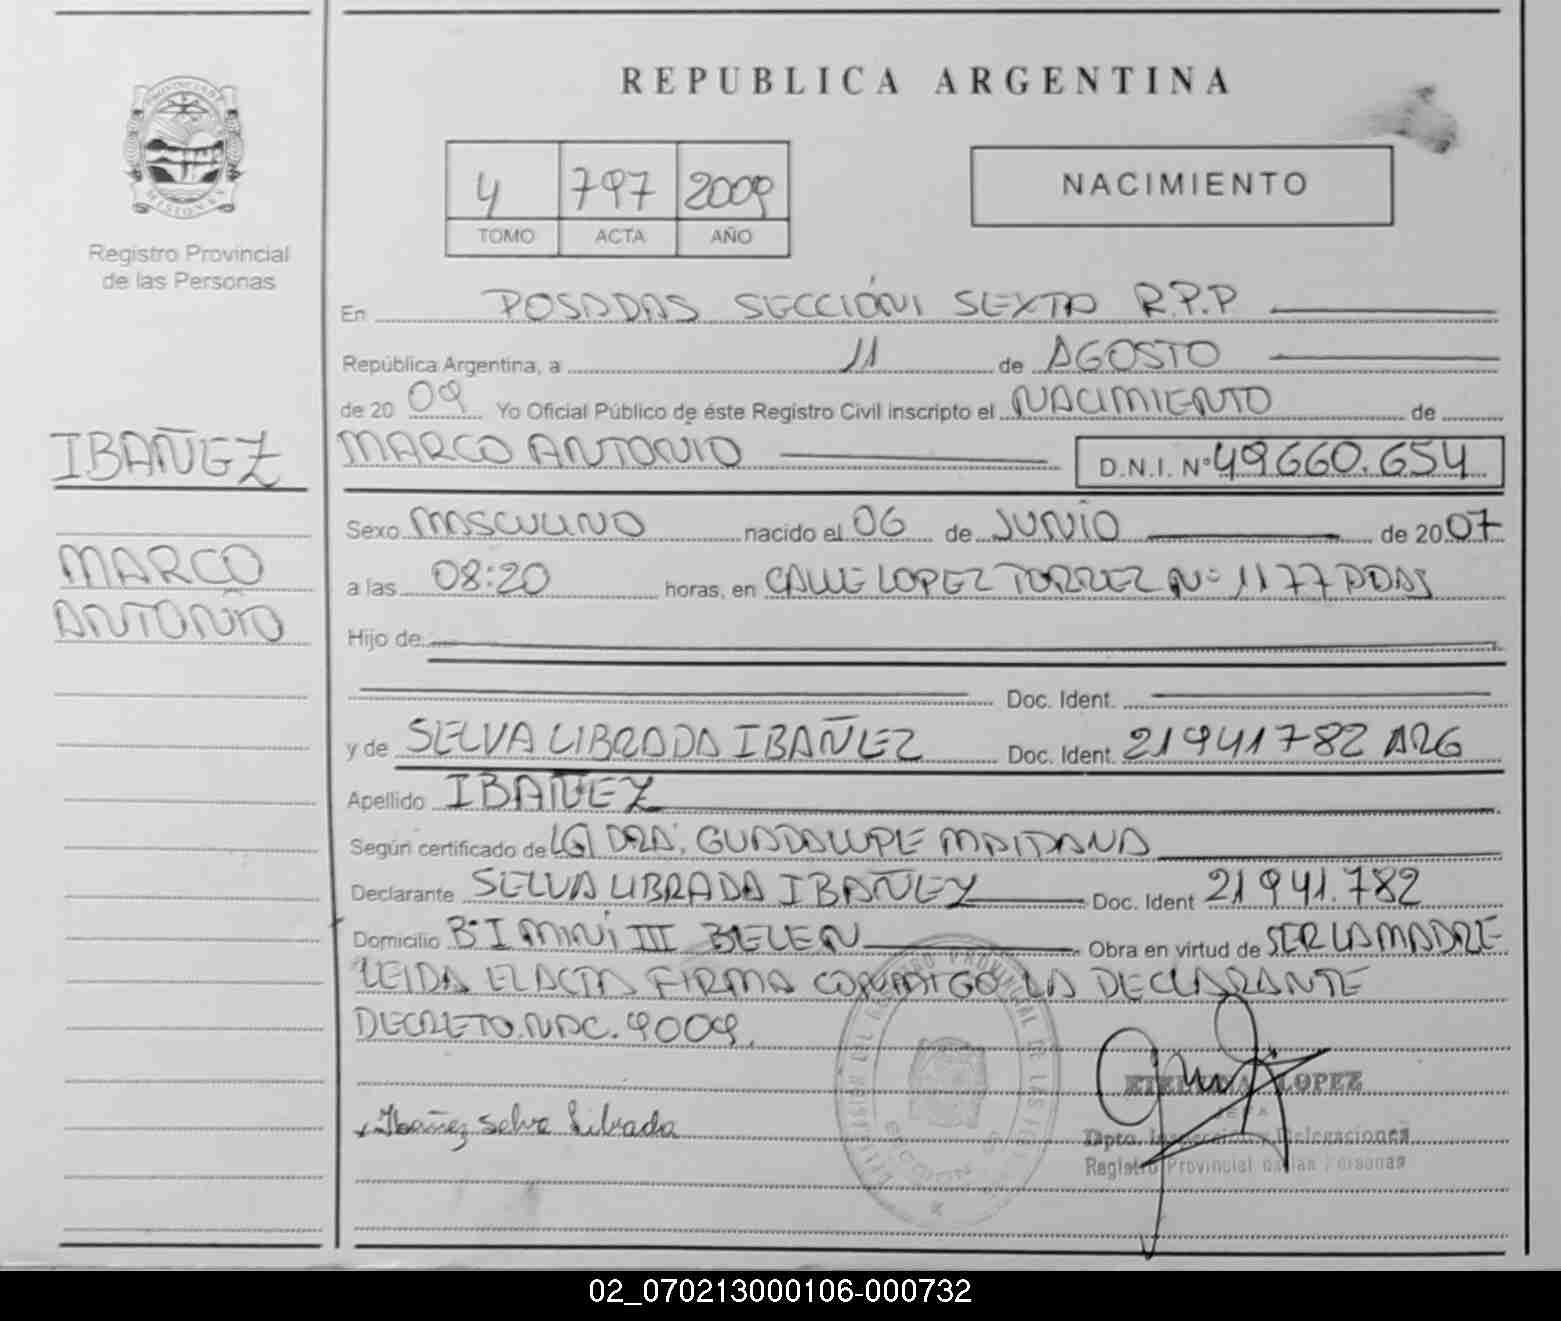 PROVINCIA DE
MISIONES
Registro Provincial
de las Personas
IBAÑEZ
MARCO
ANTONIO
REPUBLICA ARGENTINA
4 797 2009
TOMO ACTA AÑO
NACIMIENTO
En POSADAS SECCIÓN SEXTA R.P.P
República Argentina, a 11 de AGOSTO
de 2009 Yo Oficial Público de éste Registro Civil inscripto el NACIMIENTO de
MARCO ANTONIO D.N.I. Nº 49660.654
Sexo MASCULINO nacido el 06 de JUNIO de 2007
a las 08:20 horas, en CALLE LOPEZ TORREZ Nº 1177 PDAS
Hijo de
Doc. Ident.
y de SELVA LIBRADA IBAÑEZ Doc. Ident. 21941782 ARG
Apellido IBAÑEZ
Según certificado de DRA. GUADALUPE MAIDANA
Declarante SELVA LIBRADA IBAÑEZ Doc. Ident 21941.782
Domicilio Bº I MINI III BELEN Obra en virtud de SER LA MADRE
LEIDA EL ACTA FIRMA CONMIGO LA DECLARANTE
DECRETO NAC. 9009.
Ibañez Selva Librada
LOPEZ
JEFA
Dpto. Inspección y Delegaciones
Registro Provincial de las Personas
02_070213000106-000732